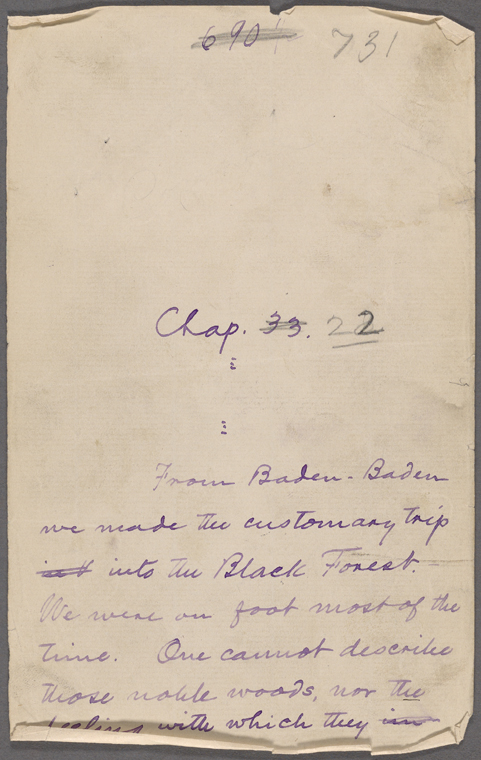 690 731
Chap. 33. 22
From Baden-Baden
we made the customary trip
int into the Black Forest.
We were on foot most of the
time. One cannot describe
those noble woods, nor the
feeling with which they in